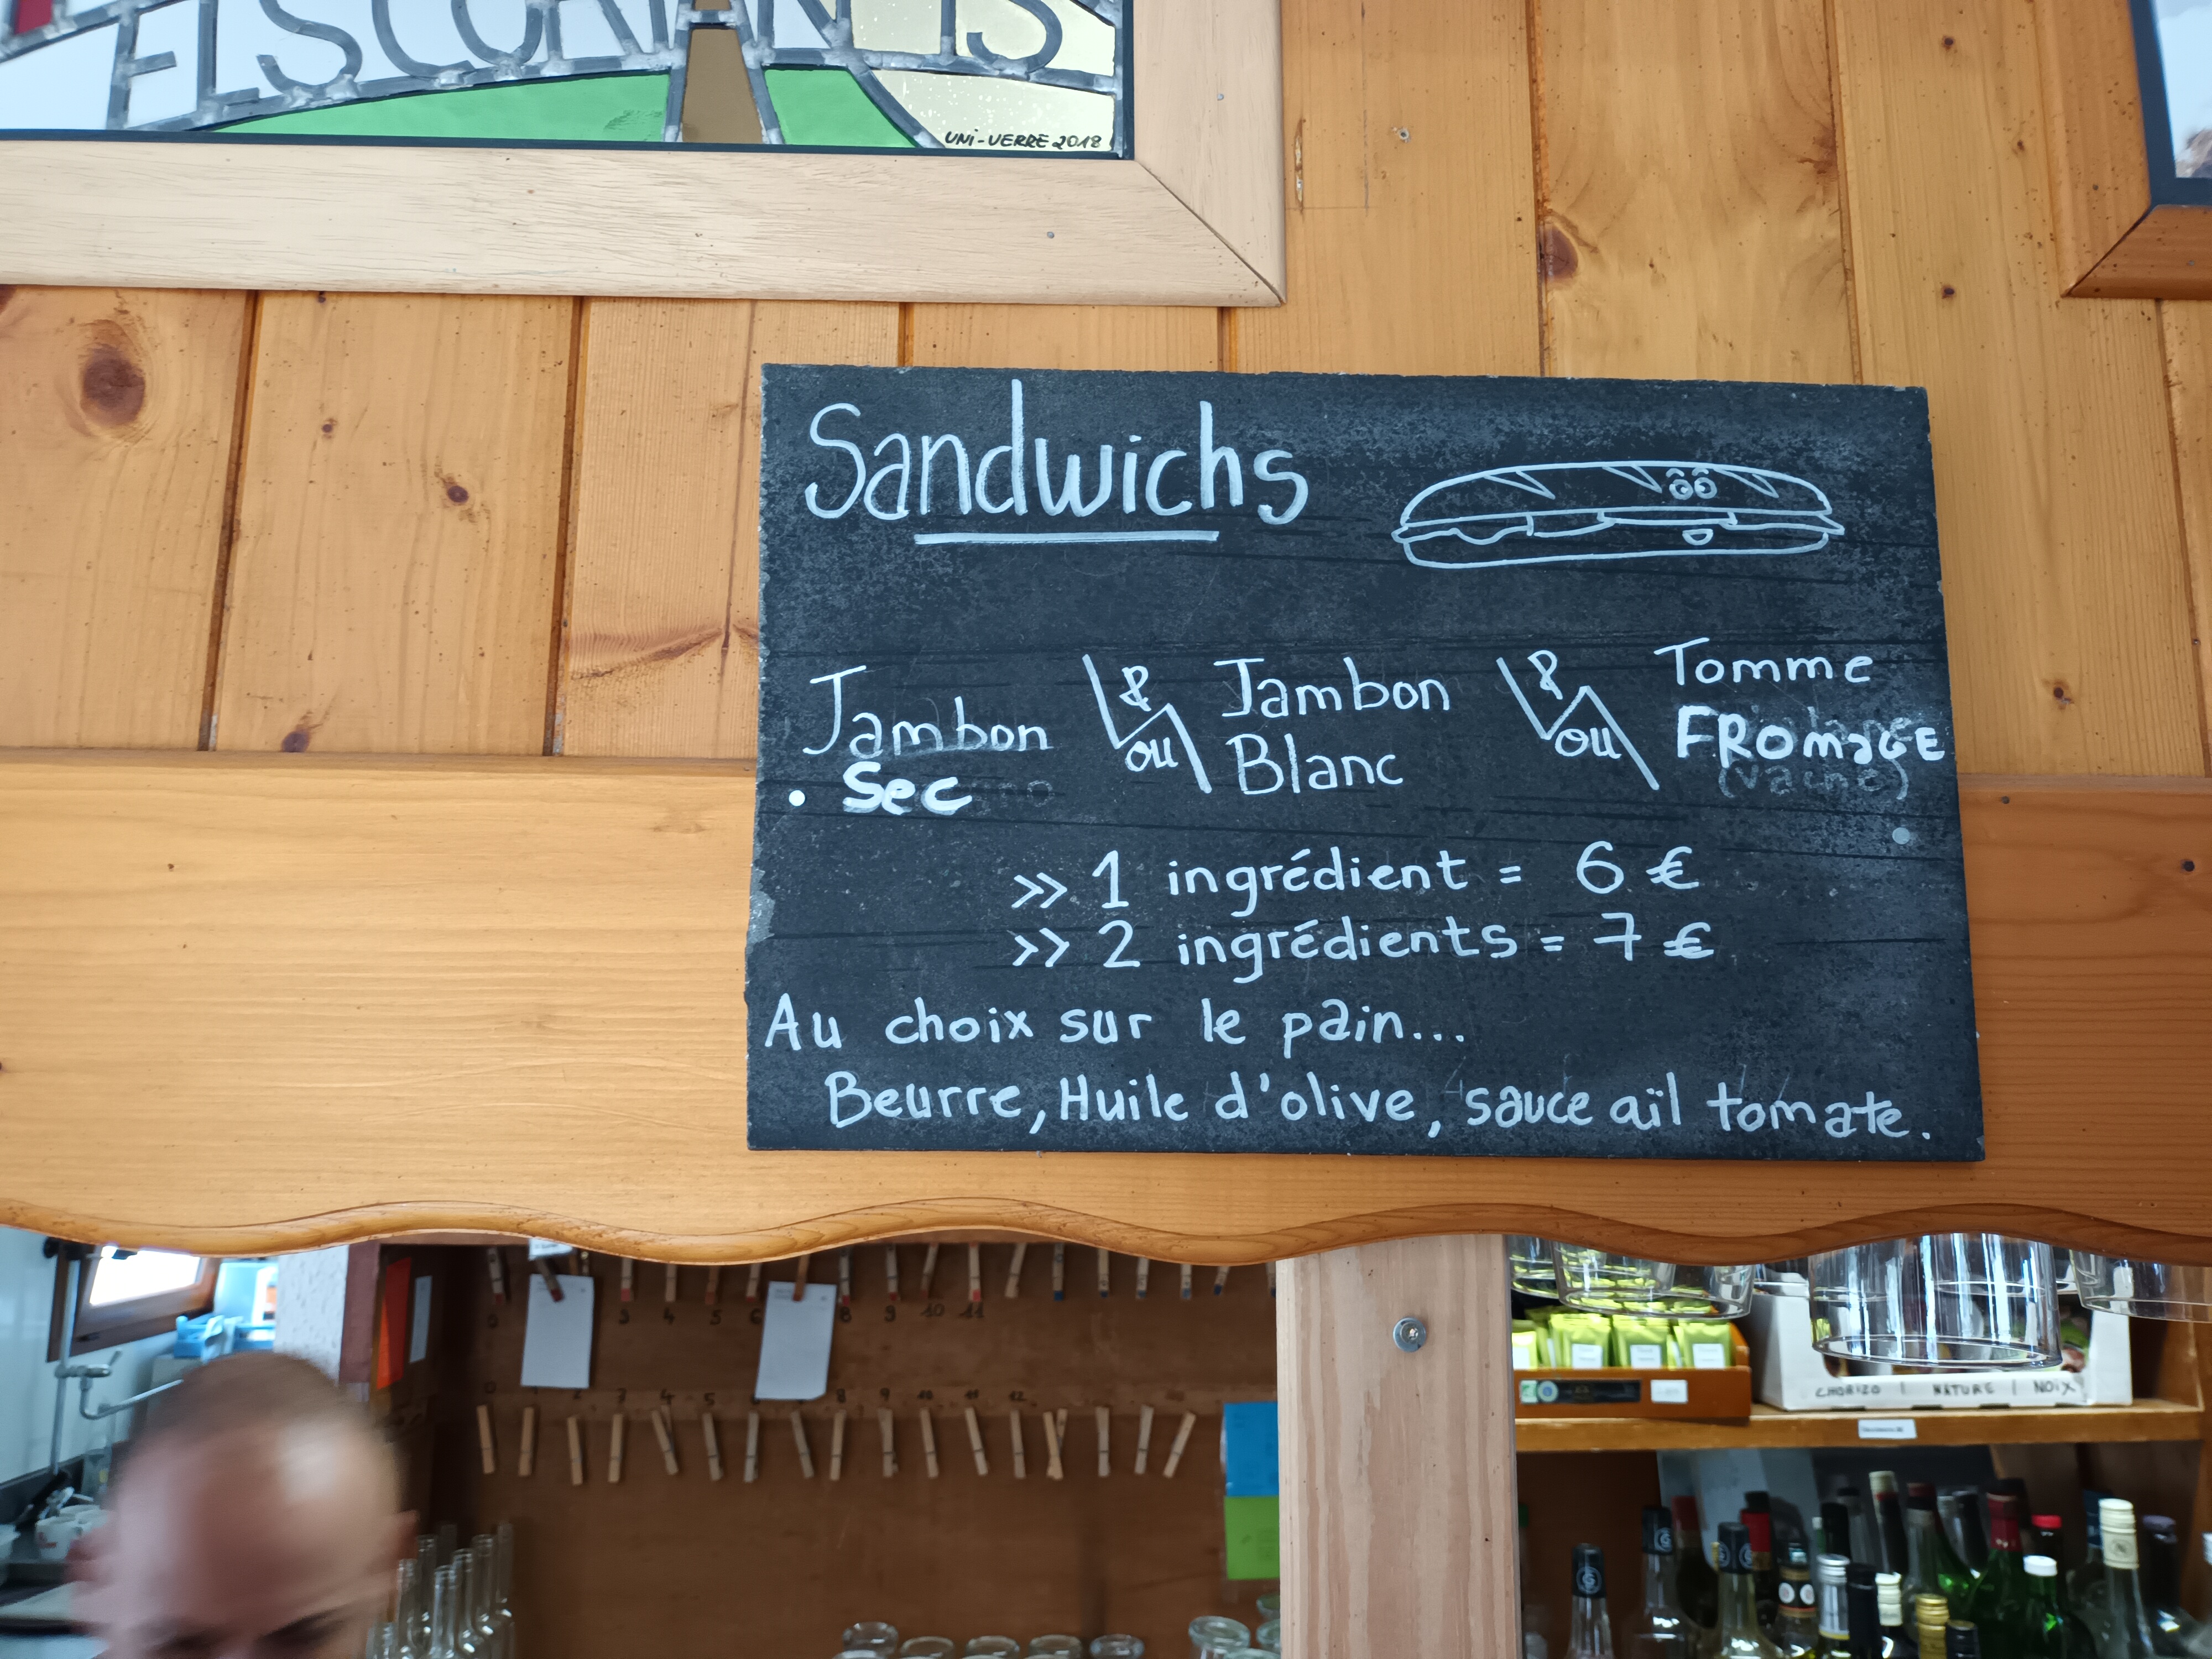 ELS CORTALETS
UNI-VERRE 2018
Sandwichs
Jambon
Sec
& ou
Jambon
Blanc
& ou
Tomme
FROMAGE
(vache)
>> 1 ingrédient = 6 €
>> 2 ingrédients = 7 €
Au choix sur le pain...
Beurre, Huile d'olive, sauce aïl tomate.
3 4 5 6 8 9 10 11
3 4 5 8 9 10 11 12
CHORIZO | NATURE | NOIX